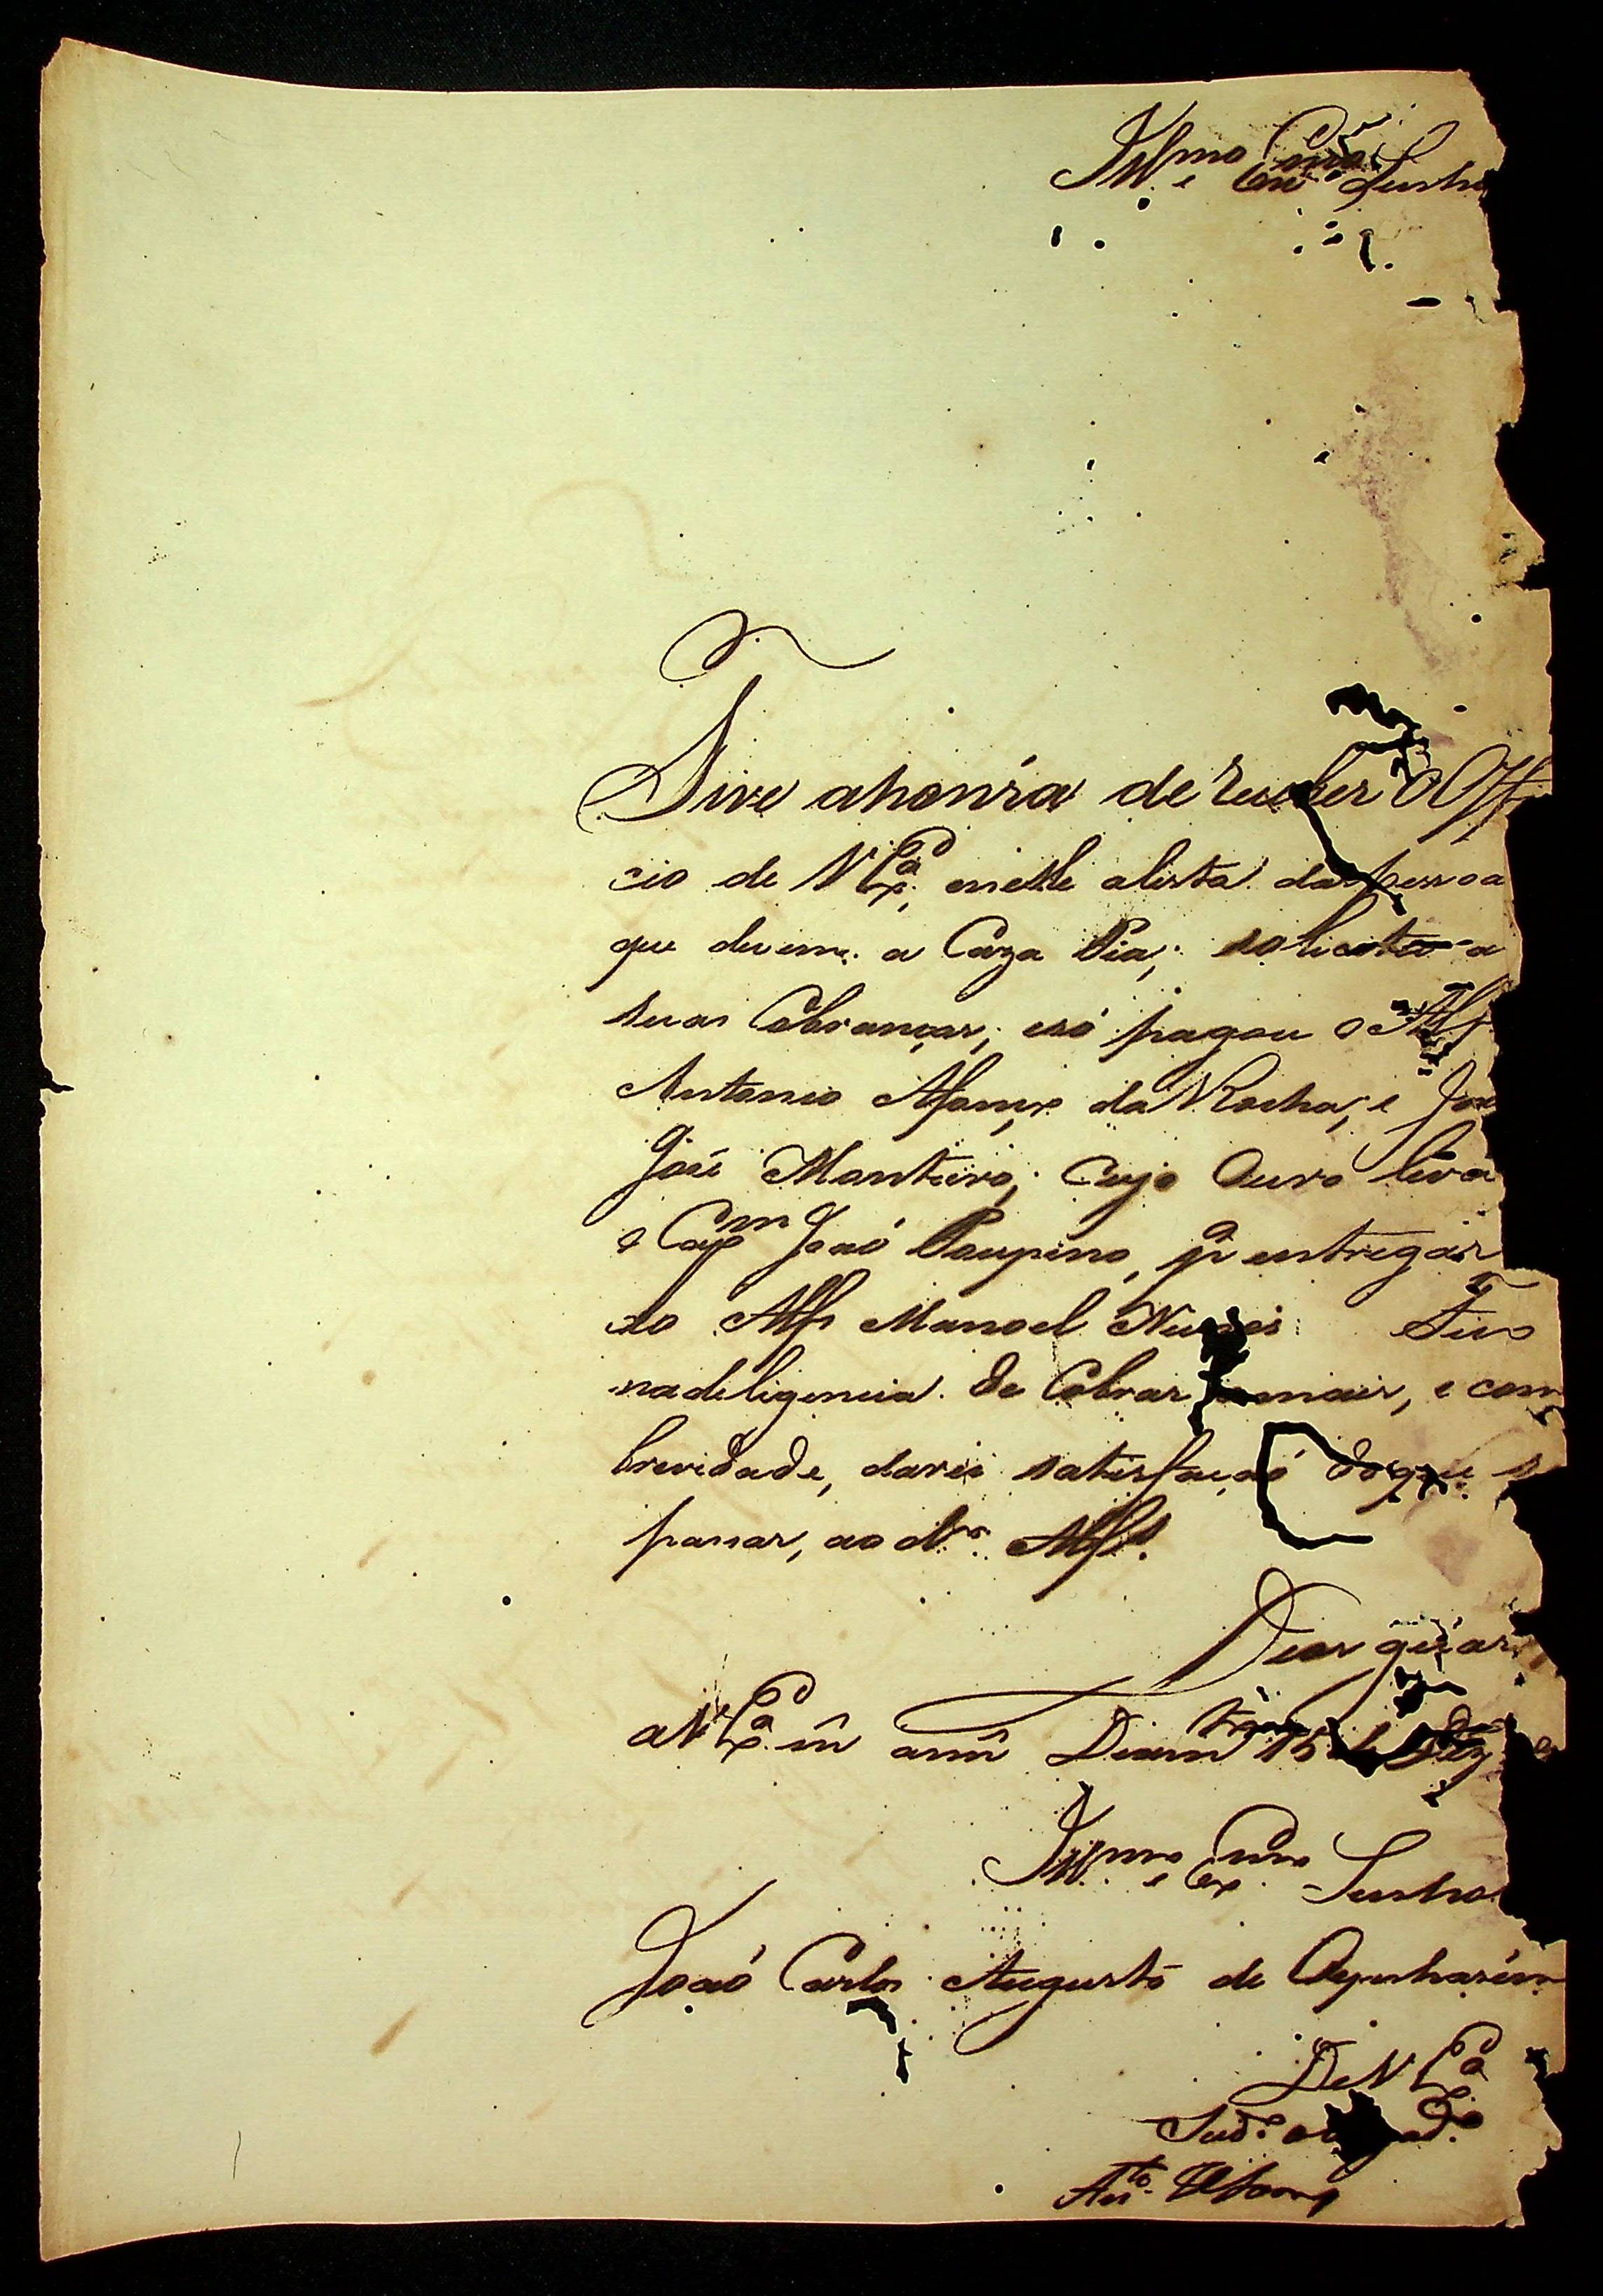 Ill.mo e Ex.mo Senho
Tive ahonra de receber o Offi
cio de V Ex.ª, enelle alista das pessoa
que devem a Caza Pia; solicitei a
suas Cobranças; esó pagou o Alf
Antonio Afonço da Rocha; e
José Monteiro; Cujo Ouro leva
o Cap.m Joaó Paupino, p.ª entregar
ao Alf Manoel Nunes. Fico
nadeligencia de Cobrar omais, e com
brevidade, darei satisfaçaó doque s
passar, ao d.º Alf.s
Deos guar
aV Ex.ª m̃ ann̄ 15 de Dez
Ill.mo e Ex.mo Senho
Joaó Carlos Augusto de Oeynhasen
De V Ex.ª
Sud.º
Ant.º